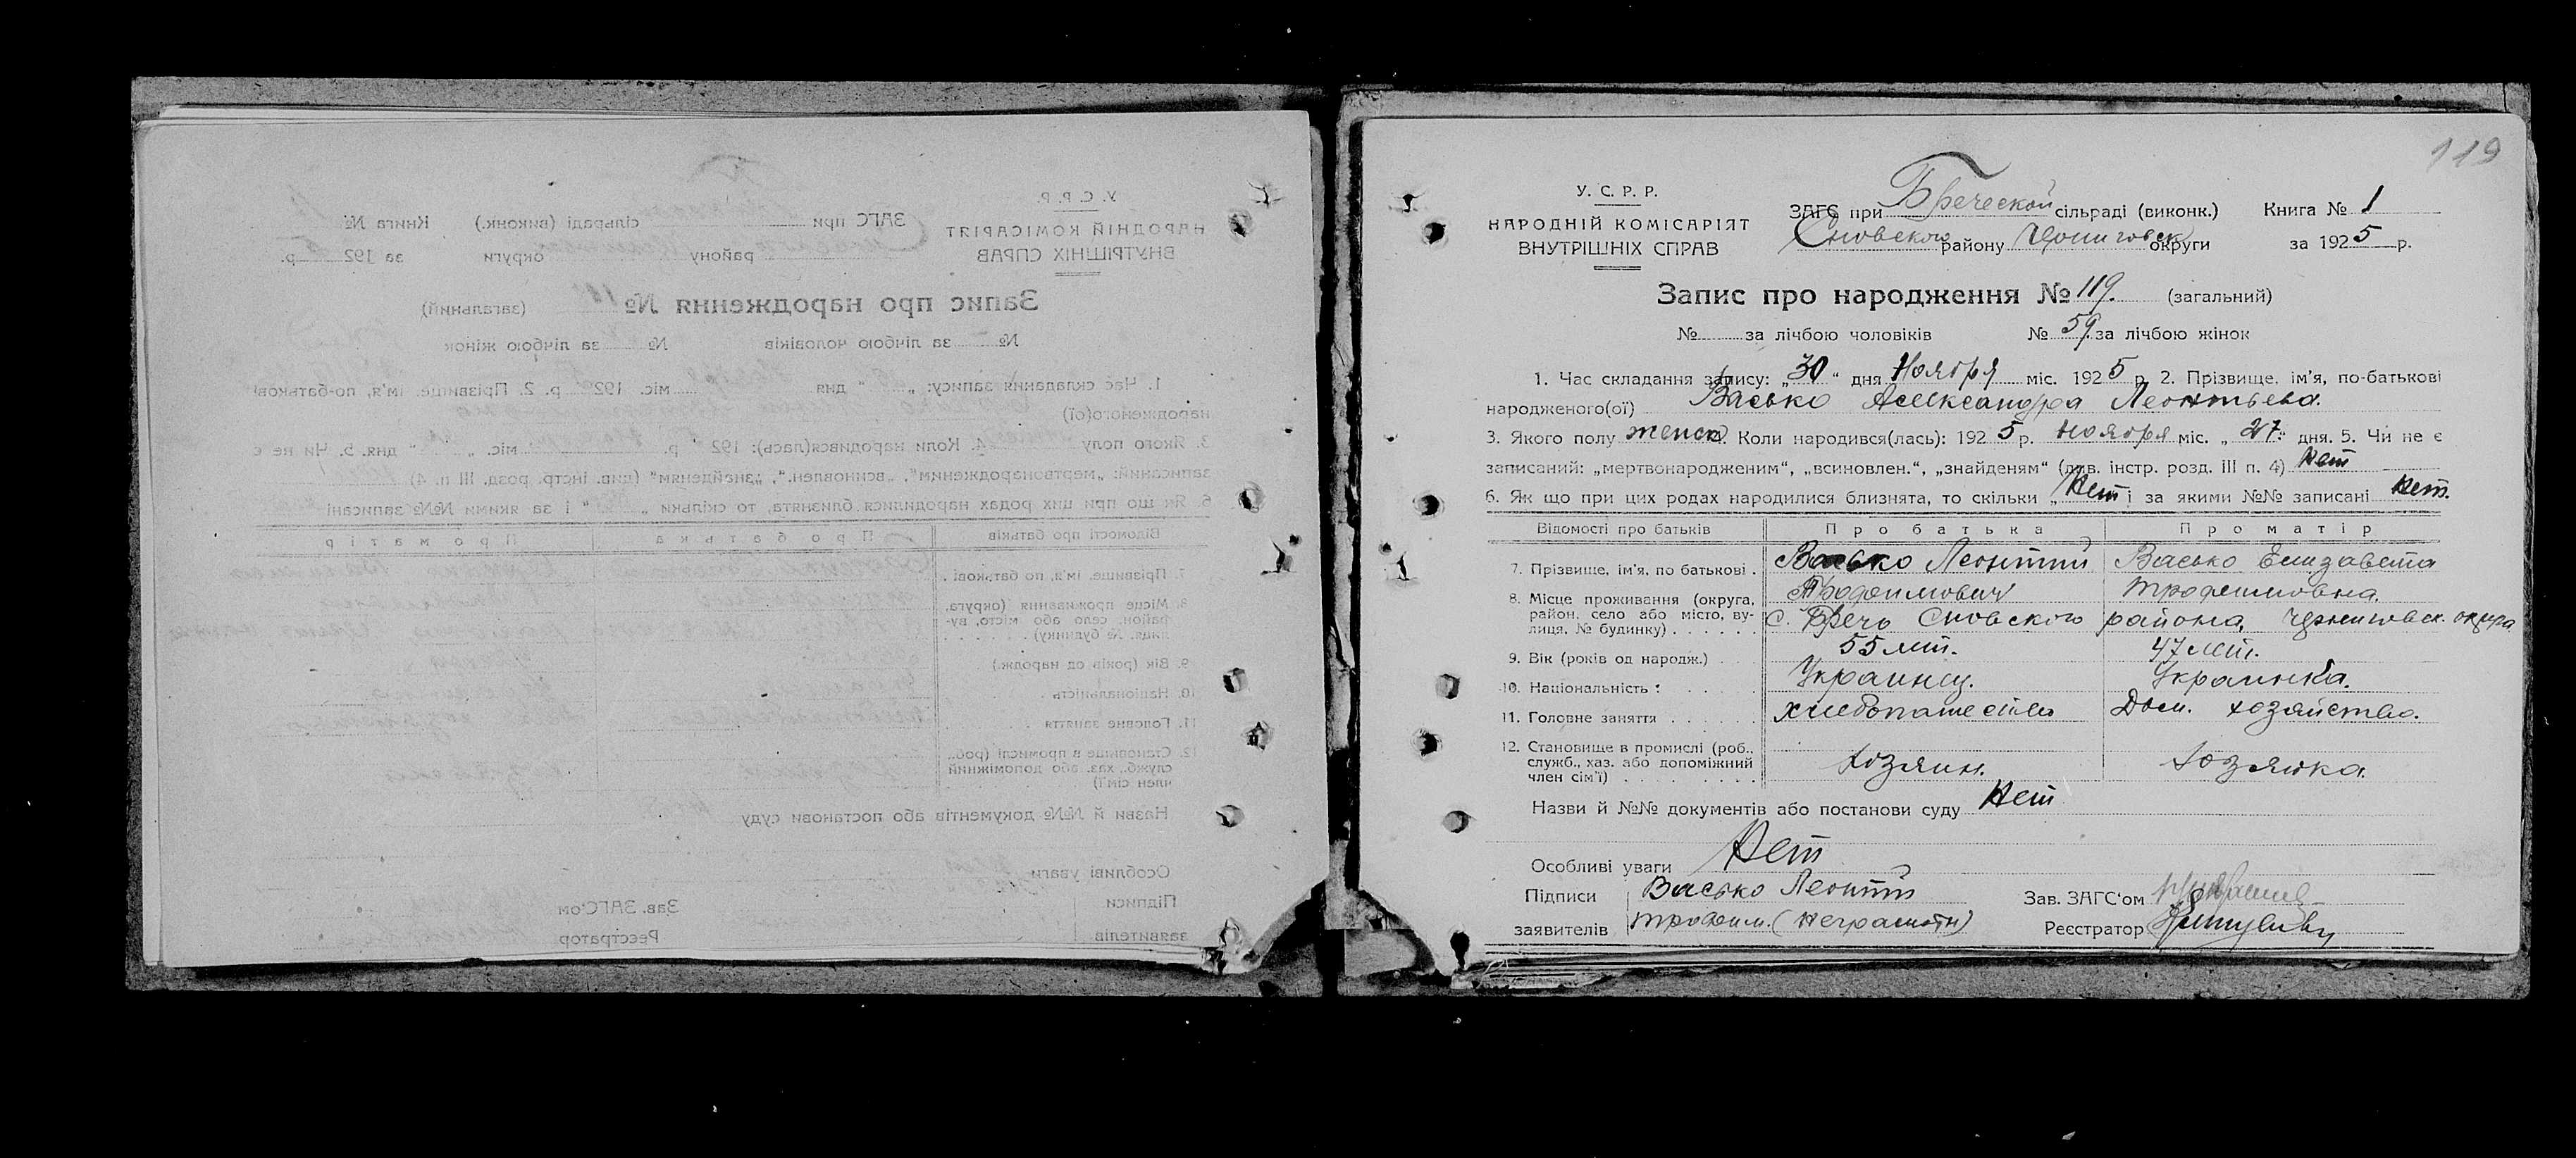 119
У. С. Р. Р.
НАРОДНІЙ КОМІСАРІЯТ
ВНУТРІШНІХ СПРАВ
ЗАГС при Бреческой сільраді (виконк.) Книга № 1
Сновского району Черниговск округи за 1925 р.
Запис про народження № 119. (загальний)
№ за лічбою чоловіків № 59. за лічбою жінок
1. Час складання запису: „30“ дня Ноября міс. 1925 р. 2. Прізвище, ім'я, по-батькові
народженого(ої) Васько Александра Леонтьева.
3. Якого полу женск. 4. Коли народився(лась): 1925 р. ноября міс. „27“ дня. 5. Чи не є
записаний: „мертвонародженим“, „всиновлен.“, „знайденям“ (див. інстр. розд. III п. 4) Нет
6. Як що при цих родах народилися близнята, то скільки „Нет і за якими №№ записані нет.
Відомості про батьків Про батька Про матір
7. Прізвище, ім'я, по батькові . Васько Леонтий Васько Елизавета
Трофимович Трофимовна.
8. Місце проживання (округа,
район, село або місто, ву-
лиця, № будинку) . . . . . . с. Бречь Сновского района, Черниговск. округа
9. Вік (років од народж.) . . 55 лет. 47 лет.
10. Національність . . . . . Украинец. Украинка.
11. Головне заняття . . . . . . хлебопашество Дом. хозяйство.
12. Становище в промислі (роб.,
служб., хаз. або допоміжний
член сім'ї) . . . . . . . . . Хозяин. Хозяйка.
Назви й №№ документів або постанови суду Нет
Особливі уваги Нет
Підписи Васько Леонтий Зав. ЗАГС'ом
заявителів Трофим. (неграмотн) Реєстратор